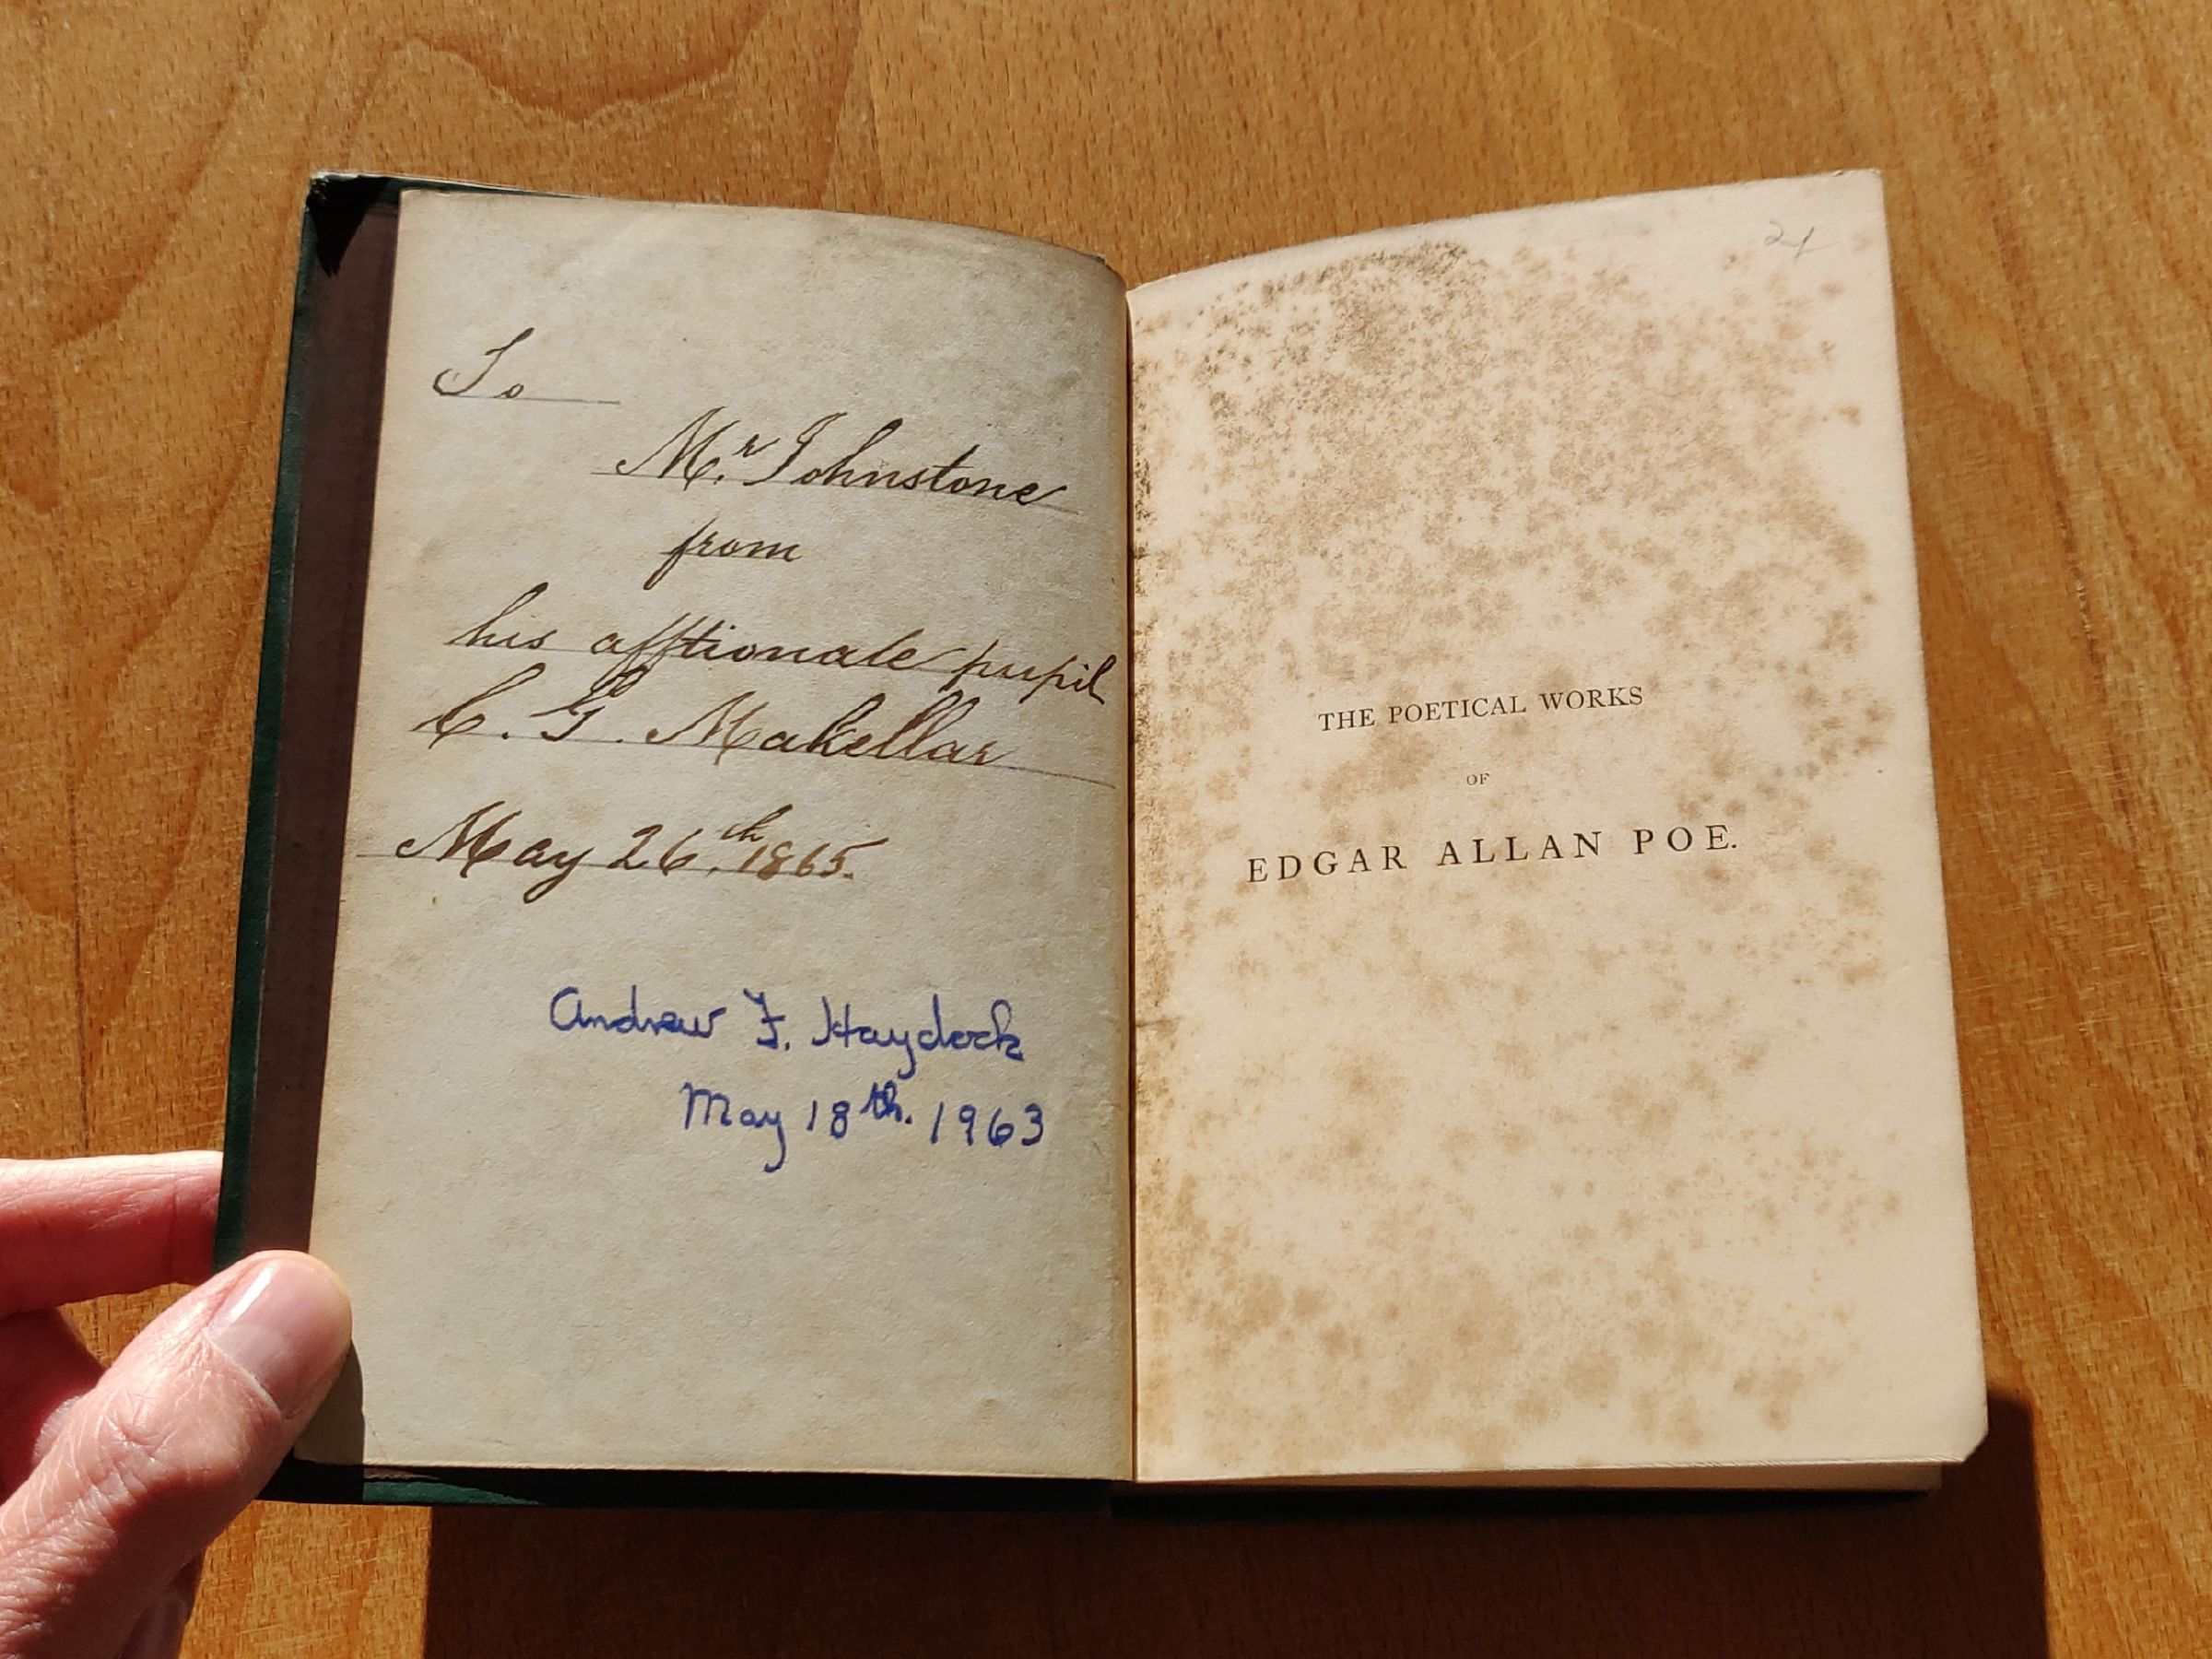 To
Mr. Johnstone
from
his afftionate pupil
C. G. Makellar
May 26.th 1865.
Andrew F. Haydock
May 18th. 1963
THE POETICAL WORKS
OF
EDGAR ALLAN POE.